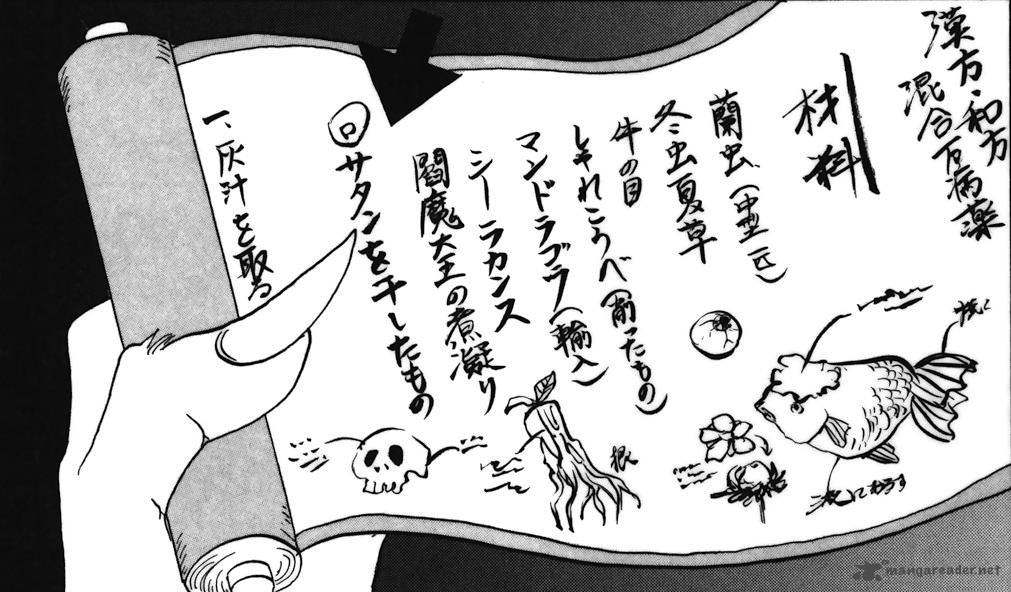 漢方・和方
混合百病薬
材料
蘭虫(中型一匹)
冬虫夏草
牛の目
しゃれこうべ(削ったもの)
マンドラゴラ(輸入)
シーラカンス
閻魔大王の煮凝り
回サタンを干したもの
一、灰汁を取る
焼く
根
mangareader.net